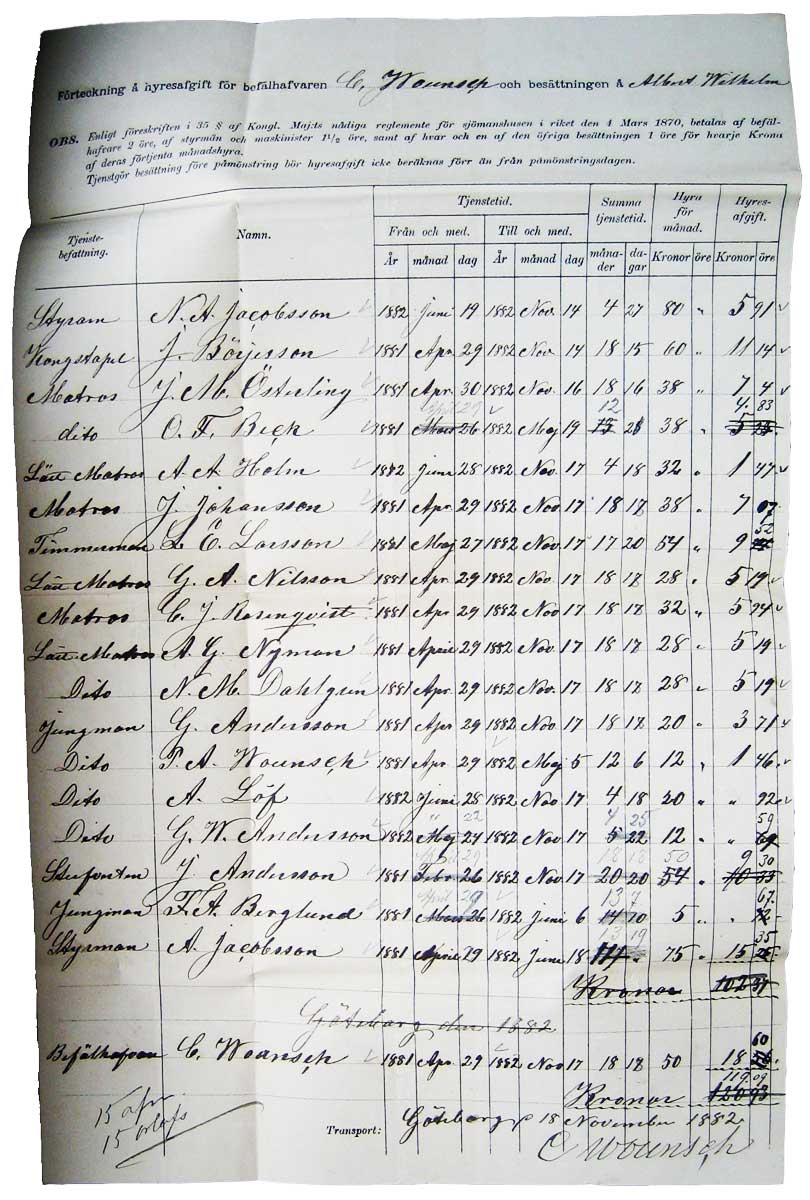 Förteckning å hyresafgift för befälhafvaren C. Wounsch och besättningen å Albert Wilhelm
OBS. Enligt föreskriften i 35 § af Kongl. Maj:ts nådiga reglemente för sjömanshusen i riket den 4 Mars 1870, betalas af befäl-
hafvare 2 öre, af styrmän och maskinister 1 1/2 öre, samt af hvar och en af den öfriga besättningen 1 öre för hvarje Krona
af deras förtjenta månadshyra.
Tjenstgör besättning före påmönstring bör hyresafgift icke beräknas förr än från påmönstringsdagen.
Tjenste-befattning. Namn. Tjenstetid. Summa tjenstetid. Hyra för månad. Hyres-afgift.
Från och med. Till och med.
År månad dag År månad dag måna-der da-gar Kronor öre Kronor öre
Styrm N. A. Jacobsson 1882 Juni 19 1882 Nov. 14 4 27 80 " 5 91
J. Börjesson 1881 Apr 29 1882 Nov 14 18 15 60 " 11 14
Matros J. M. Österling 1881 Apr. 30 1882 Nov. 16 18 16 38 " 7 4
April 29 12 4. 83
dito O. F. Beck 1881 Mars 26 1882 Maj 19 38 " 5
Lätt Matros A. A. Holm 1882 Juni 28 1882 Nov. 17 4 18 32 " 1 47
Matros J. Johansson 1881 Apr. 29 1882 Nov 17 18 17 38 " 7 07
52
Timmerman L. E. Larsson 1881 Maj 27 1882 Nov. 17 17 20 54 " 9
Lätt Matros G. A. Nilsson 1881 Apr. 29 1882 Nov. 17 18 18 28 " 5 19
Matros C. J. Rosenqvist 1881 Apr 29 1882 Nov 17 18 18 32 " 5 94
Lätt Matros A. G. Nyman 1881 April 29 1882 Nov. 17 18 18 28 " 5 19
Dito N. M. Dahlgren 1881 Apr. 29 1882 Nov. 17 18 18 28 " 5 19
Jungman G. Andersson 1881 Apr 29 1882 Nov. 17 18 18 20 " 3 71
Dito F. A. Wounsch 1881 Apr 29 1882 Maj 5 12 6 12 " 1 46
Dito A. Löf 1882 Juni 28 1882 Nov 17 4 18 20 " " 92
" 22 4 25 59
Dito G. W. Andersson 1882 Maj 27 1882 Nov 17 5 22 12 " " 69
April 29 18 18 50 9 30
J. Andersson 1881 Febr. 26 1882 Nov. 17 20 20 54 " 10
April 29 13 7 67
Jungman F. A. Berglund 1881 Mars 26 1882 Juni 6 14 10 5 " "
13 19 35
Styrman A. Jacobsson 1881 April 29 1882 Juni 18 75 " 15
Kronor 102 31
Göteborg den 1882
60
Befälhafvare C. Wounsch 1881 Apr 29 1882 Nov 17 18 18 50 18
119 09
Kronor 120 93
15
15
Transport: Göteborg d 18 November 1882
C Wounsch